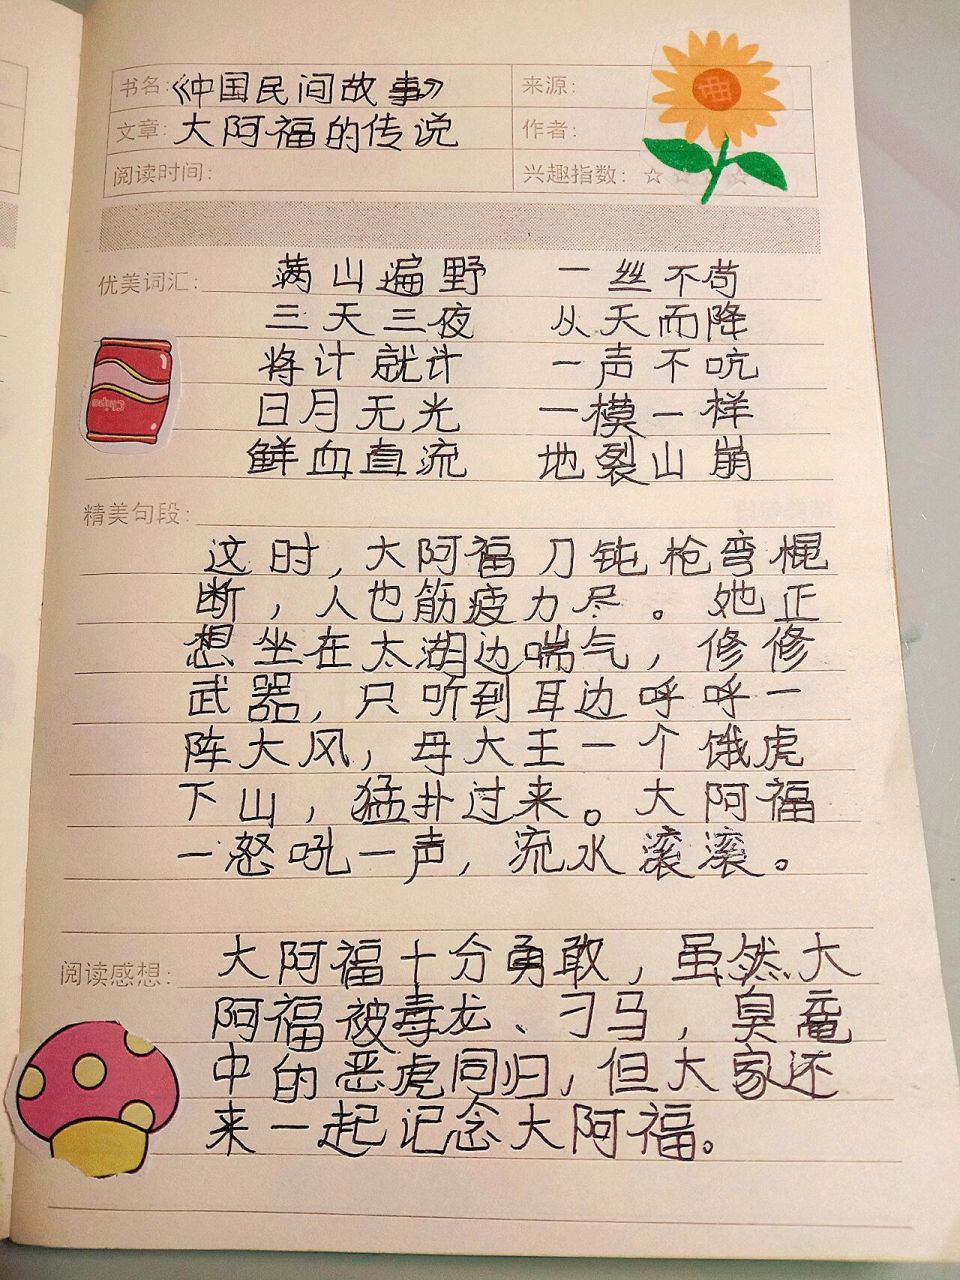 书名:《中国民间故事》 来源:
文章: 大阿福的传说 作者:
阅读时间: 兴趣指数: ☆ ☆ ☆ ☆
优美词汇: 满山遍野 一丝不苟
三天三夜 从天而降
将计就计 一声不吭
日月无光 一模一样
鲜血直流 地裂山崩
精美句段:
这时,大阿福刀钝枪弯棍
断,人也筋疲力尽。她正
想坐在太湖边喘气,修修
武器,只听到耳边呼呼一
阵大风,母大王一个饿虎
下山,猛扑过来。大阿福
一怒吼一声,流水滚滚。
阅读感想: 大阿福十分勇敢,虽然大
阿福被毒龙、刁马,臭鼋
中的恶虎同归,但大家还
来一起记念大阿福。
Chips